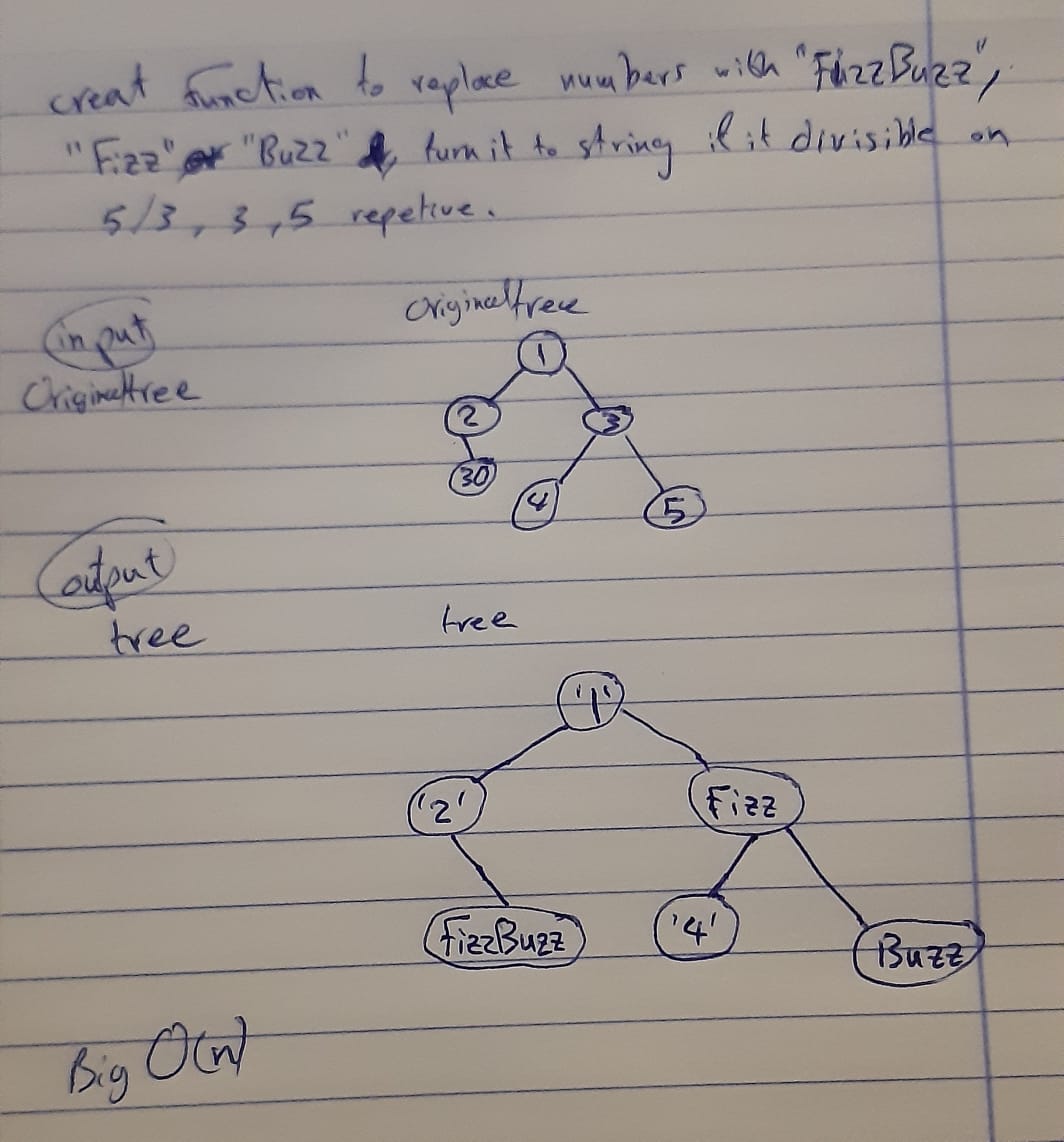 creat function to replace numbers with "FizzBuzz",
"Fizz" or "Buzz" turn it to string if it divisible on
5/3, 3, 5 repetive.
Originaltree
input
Originaltree
1
2
3
30
4
5
output
tree
tree
'1'
'2'
Fizz
FizzBuzz
'4'
Buzz
Big O(n)